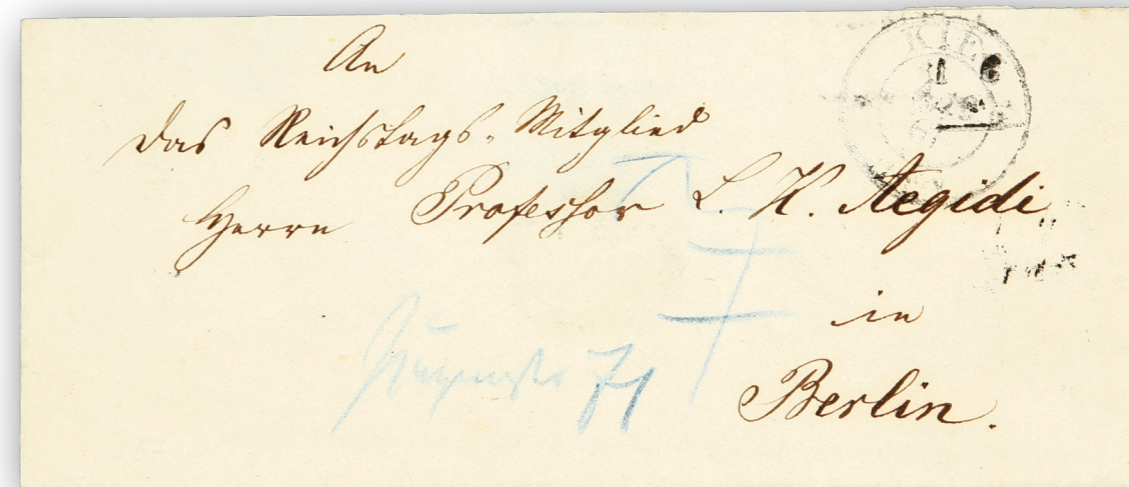 An
das Reichstags-Mitglied
Herrn Professor L. K. Aegidi
in
Berlin.
KIEL
71